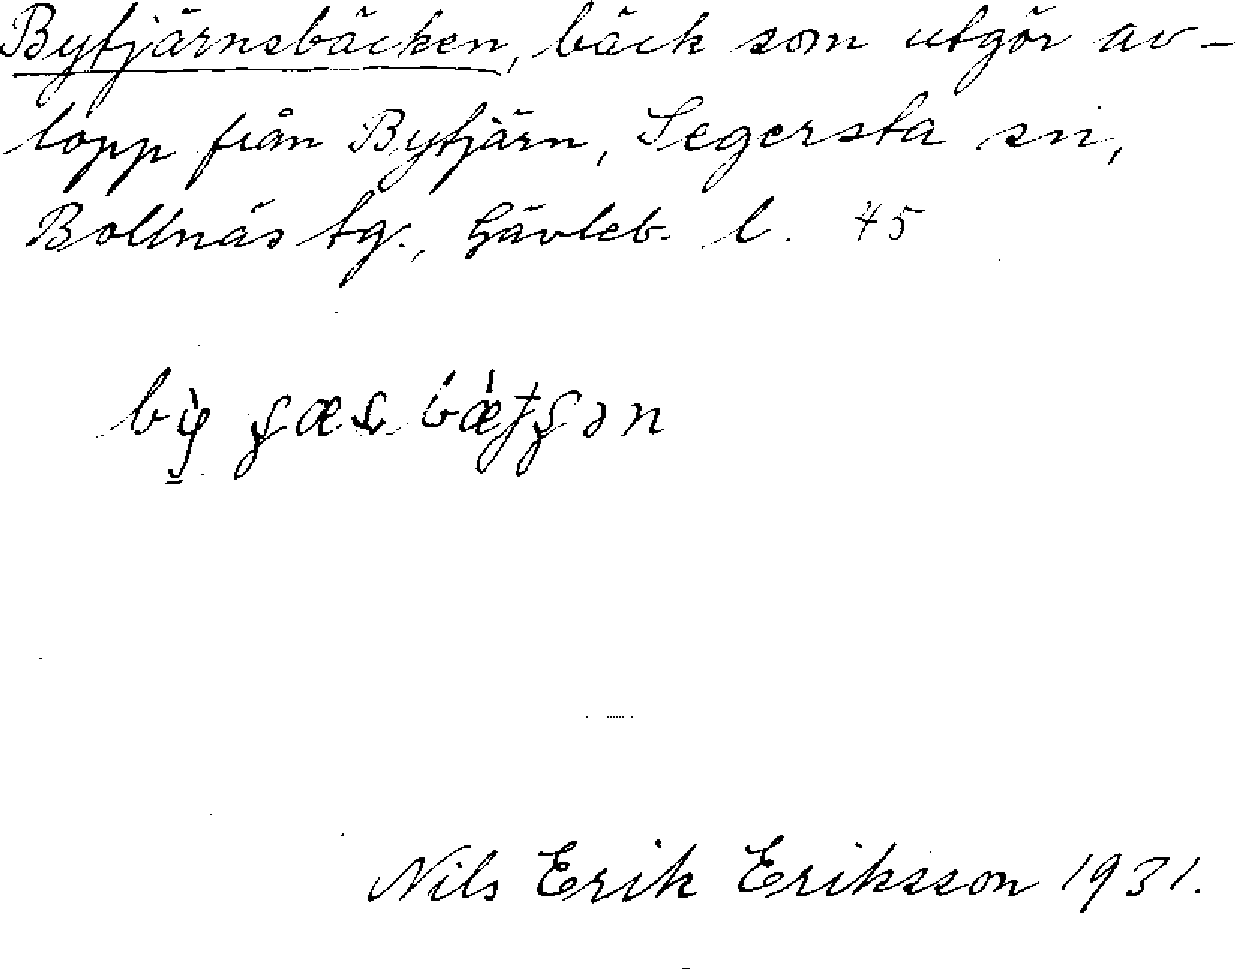 Bytjärnsbäcken, bäck som utgör av-
lopp från Bytjärn, Segersta sn,
Bollnäs tg., Gävleb. l. 45
Nils Erik Eriksson 1931.